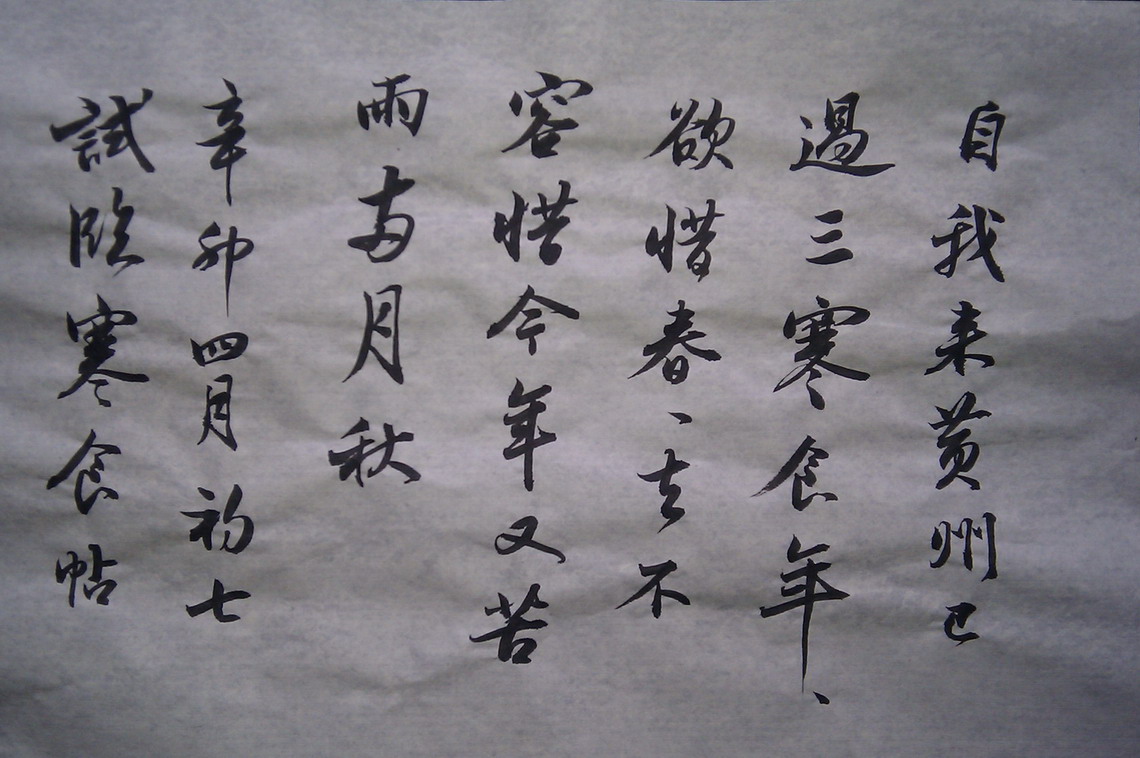 自我来黄州已
過三寒食年、
欲惜春、去不
容惜今年又苦
雨两月秋
辛卯四月初七
試臨寒食帖